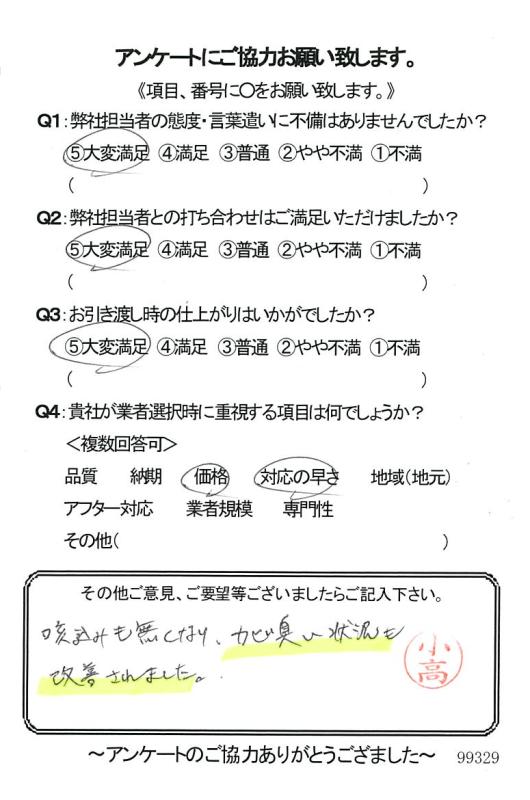 アンケートにご協力お願い致します。
《項目、番号に〇をお願い致します。》
Q1:弊社担当者の態度・言葉遣いに不備はありませんでしたか?
⑤大変満足 ④満足 ③普通 ②やや不満 ①不満
( )
Q2:弊社担当者との打ち合わせはご満足いただけましたか?
⑤大変満足 ④満足 ③普通 ②やや不満 ①不満
( )
Q3:お引き渡し時の仕上がりはいかがでしたか?
⑤大変満足 ④満足 ③普通 ②やや不満 ①不満
( )
Q4:貴社が業者選択時に重視する項目は何でしょうか?
<複数回答可>
品質 納期 価格 対応の早さ 地域(地元)
アフター対応 業者規模 専門性
その他( )
その他ご意見、ご要望等ございましたらご記入下さい。
咳込みも無くなり、カビ臭い状況も
改善されました。
小高
~アンケートのご協力ありがとうござました~ 99329